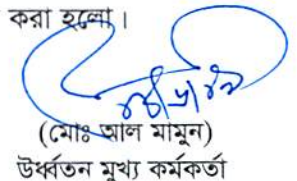 করা হলো।
(মোঃ আল মামুন)
উর্ধ্বতন মুখ্য কর্মকর্তা